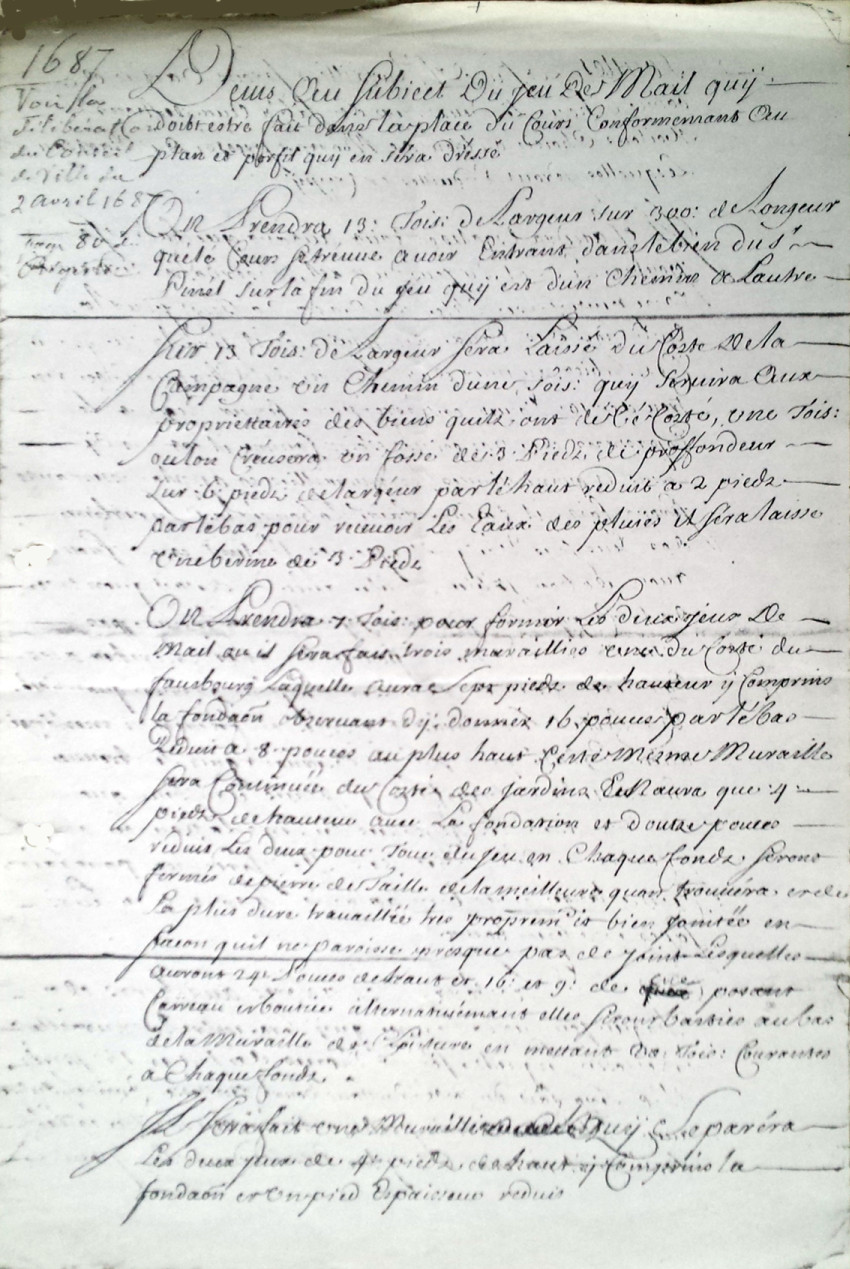 1687
Voir la
deliberation
du Conseil
de Ville du
2 avril 1687
Devis Au Subiect Du jeu De Mail quy
doibt estre fait dans la place du Cours Conformemant Au
plan et porfil quy en sera dressé
On Prendra 13: Tois: de Largeur sur 300: de Longeur
que le Cours se treuve avoir Entrant dans le bien du Sr
Pinel sur la fin du jeu quy est d'un Chemin a Lautre
Sur 13 Tois: de Largeur sera Laissé du Costé De la
Campagne un Chemin dune Tois: quy servira Aux
propriettaires des biens quilz ont de Ce Costé, une Tois:
ou lon Creusera un fossé de 3 Piedz de proffondeur
sur 6 piedz de largeur par le haut reduit a 2 piedz
par le bas pour recevoir Les Eaux des pluies il sera laissé
une berme de 3 Piedz
On Prendra 7 Tois: pour former Les deux jeux De
Mail ou il sera fait trois murailles une du Costé du
fausbourg Laquelle aura Sept piedz de hauteur y Comprins
la fondaon observant dy donner 16 pouces par le bas
Reduit a 8 pouces au plus haut Cette Mesme Muraille
sera Continuée du Costé des jardins Et Naura que 4
piedz de hauteur avec La fondation et douze pouces
reduit, Les deux pour Tour du jeu en Chaque fondz seront
formés de pierre de Taille de la meilleure quon trouvera et de
La plus dure travaillée tres proprement et bien jointée en
facon quil ne paroisse presque pas de joint Lesquelles
auront 24 Pouces de haut et 16: et 9: de posant
Carreau et boutice alternativemant elles seront basties au bas
de la Muraille de Cloiture en mettant Tois: Courantes
a Chaque fondz
Il sera fait une Muraille quy Separéra
Les deux jeux de 4 piedz de haut y Comprins la
fondaon et un pied Espaisseur reduit